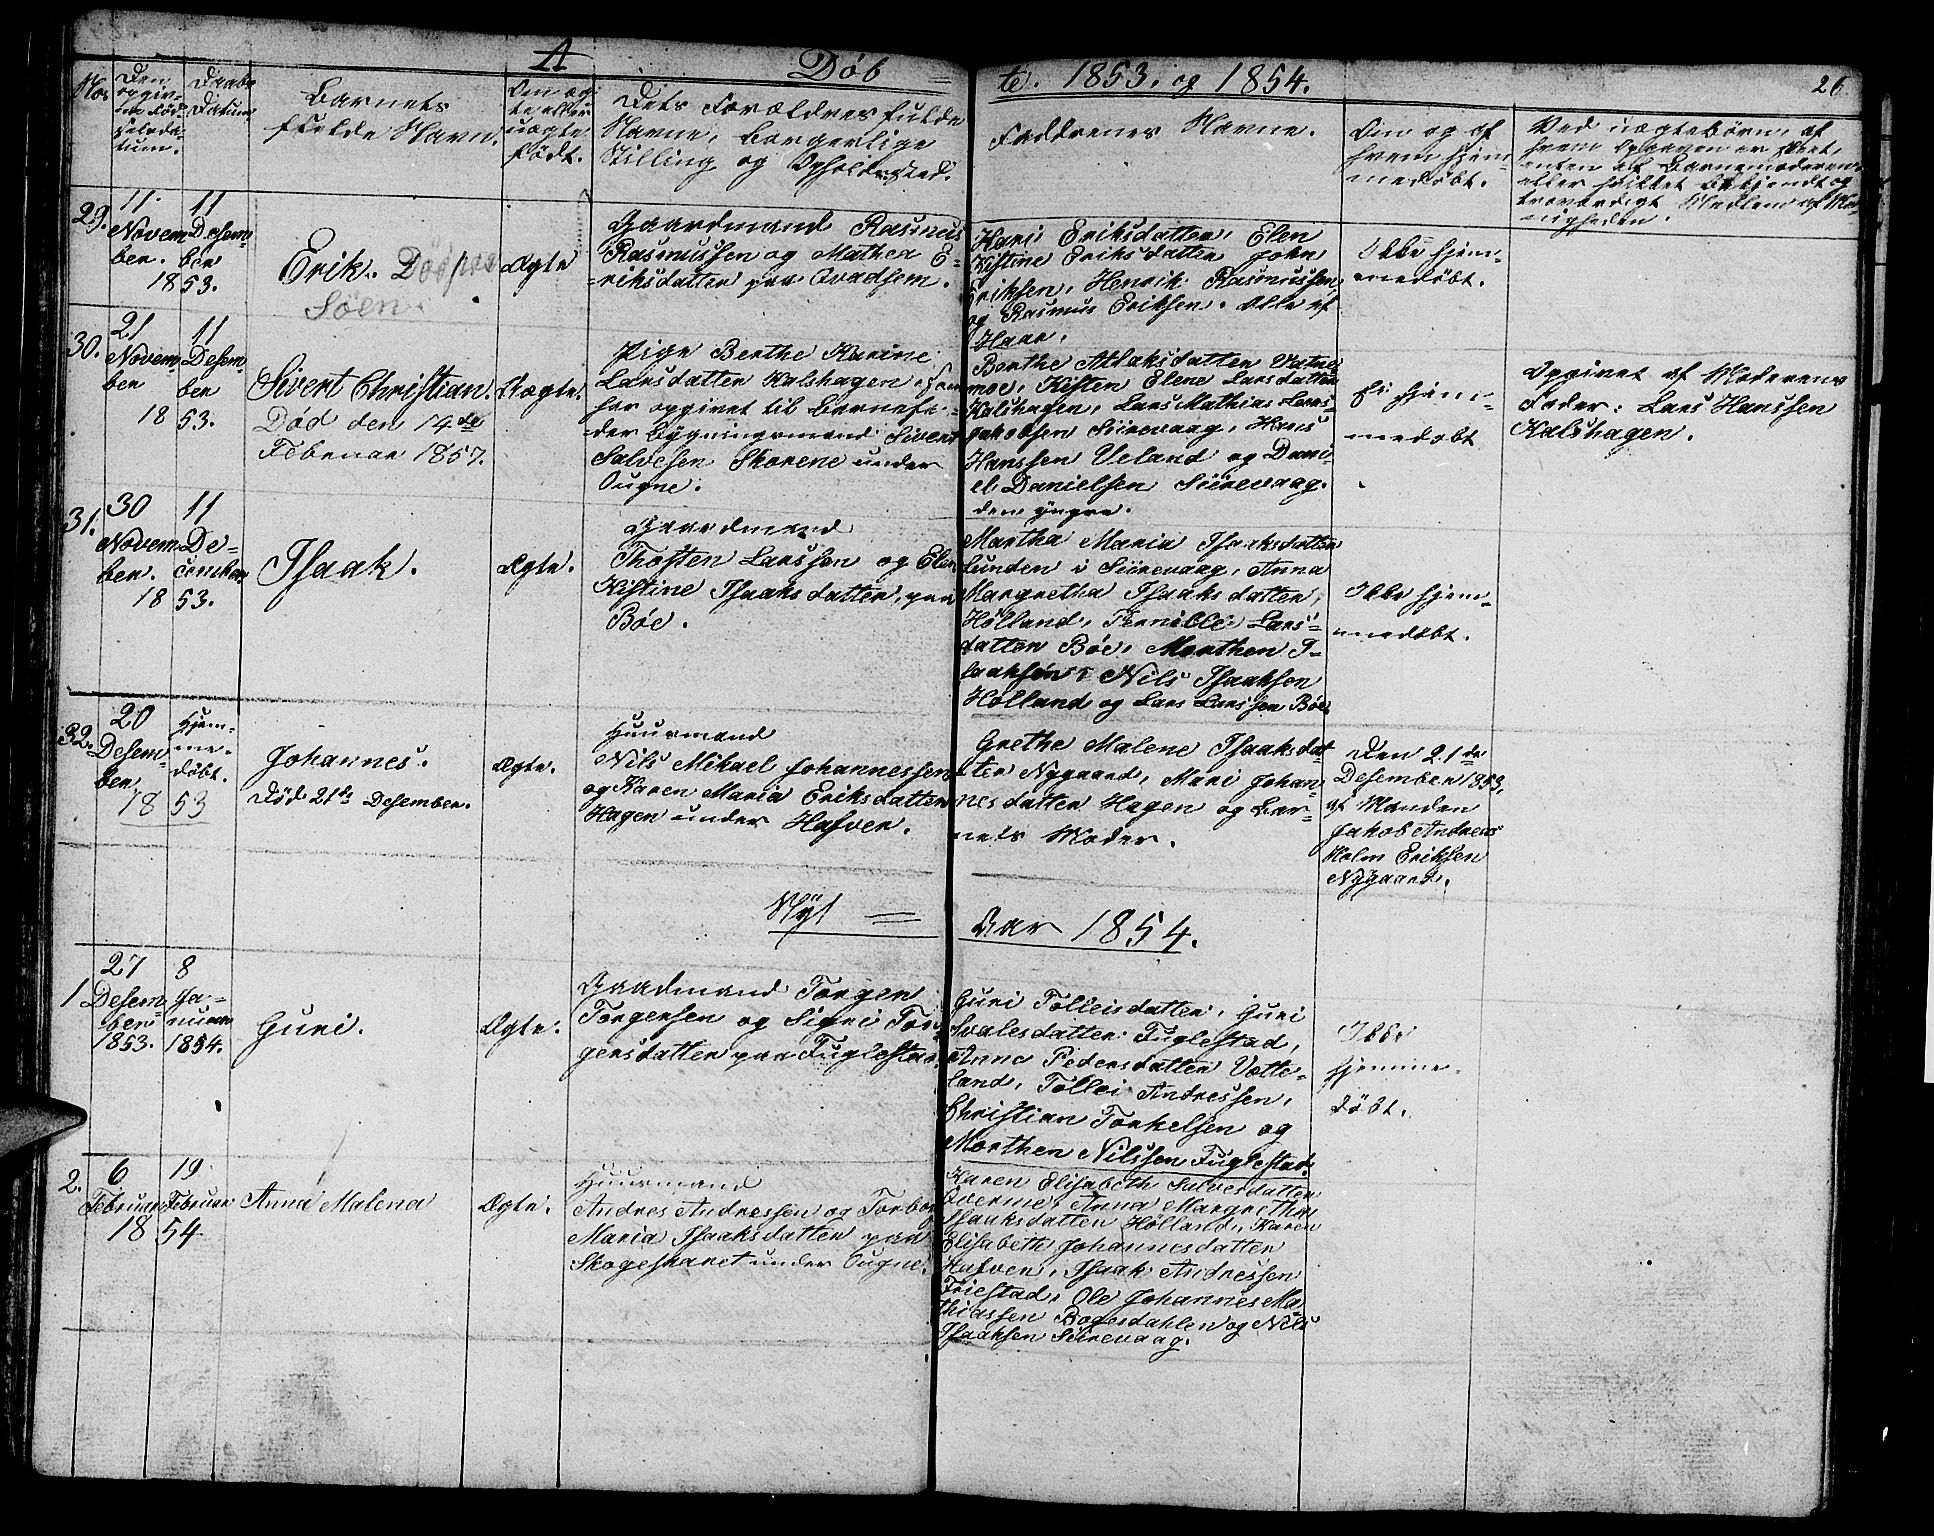 A
Døb = te. 1853. og 1854.
26
No.
Den opgiv-
ne Fød-
selsda-
tum.
Daabs
Datum
Barnets
fulde Navn.
Om æg-
te eller
uægte
født.
Dets Forældres fulde
Navne, borgerlige
Stilling og Opholdssted.
Faddrenes Navne.
Om og af
hvem hjem-
medøbt.
Ved uægtebörn, af
hvem Opgaven er skeet,
enten af Barnemoderen
eller
troværdigt Medlem af Me-
nigheden.
29.
11.
Novem
ber.
18
11
Desem-
ber
53.
Erik.
Søen.
Ægte
Gaardmand Rasmus
Rasmussen og Mathea E-
riksdatter paa Qvadsem.
Hani Eriksdatter, Elen
Kistine Eriksdatter John
Eriksen, Henrik Rasmussen
og Rasmus Eriksen. Alle af
Haar.
Ikke hjem-
medøbt.
30.
21
Novem
ber
18
11
Desem-
ber
53.
Sivert Christian.
Død den 14de
Februar 1857.
Uægte.
Pige Berthe Karine
Larsdatter Kalshagen, som
har opgivet til Barnefa-
der Bygningsmand Sivert
Salvesen Skorene under
Ougne.
Berthe Atlaksdatter Vatne
moe, Kisten Elene Larsdatter
Kalshagen, Lars Mathias Lars-
Jakobsen Siirevaag, Hans
Hanssen Veland og Dani-
el Danielsen Siirevaag.
den yngre.
Ei hjem-
medøbt
Opgivet af Moderens
Fader: Lars Hanssen
Kalshagen.
31.
30
Novem
ber.
18
11
De-
cember
53.
Isaak.
Ægte.
Gaardmand
Thosten Larssen og Elen
Kistine Isaaksdatter, paa
Bøe.
Martha Maria Isaaksdatter
Lunden i Siirevaag, Anna
Margretha Isaaksdatter,
Hölland, Pernille Lars-
datter Bøe, Morthen I-
saaksen, Nils Isaaksen
Hölland og Lars Larssen Bøe
Ikke hjem-
medøbt.
32.
20
Desem-
ber
18
Hjem-
me-
døbt.
53
Johannes.
Død 21de Desember.
Ægte.
Huusmand
Nils Mikael Johannessen
og Karen Maria Eriksdatter
Hagen under Hafven.
Grethe Malene Isaaksdat-
ter Nygaard, Mari Johan-
nesdatter Hagen og Bar-
nets Moder.
Den 21de
Desember 1853,
af Manden
Jakob Andreas
Holm Eriksen
Nygaard.
Nyt = Aar 1854.
1
27
Desem
ber
1853.
8
Ja-
nuar
1854.
Guri.
Ægte.
Gaardmand Torger
Torgersen og Sigri Tor-
gersdatter paa Fuglestad.
Guri Tolleisdatter, Guri
Svalesdatter Fuglestad,
Anne Pedersdatter Vætte-
land, Tollei Andressen,
Christian Torkelsen og
Morthen Nilssen Fuglestad.
Ikke
hjemme-
døbt.
2.
6
Februar
18
19
Februar
54
Anna Malena
Ægte.
Huusmand
Andres Andressen og Torbor
Maria Isaaksdatter paa
Skogeskaret under Ougne.
Karen Elisabeth Salvesdatter
Qverme, Anna Margretha
Isaaksdatter Hölland, Karen
Elisabeth Johannesdatter
Hafven, Isaak Andressen
Friestad, Ole Johannes Ma-
thiassen Bogesdahlen og Nils
Isaaksen Siirevaag.